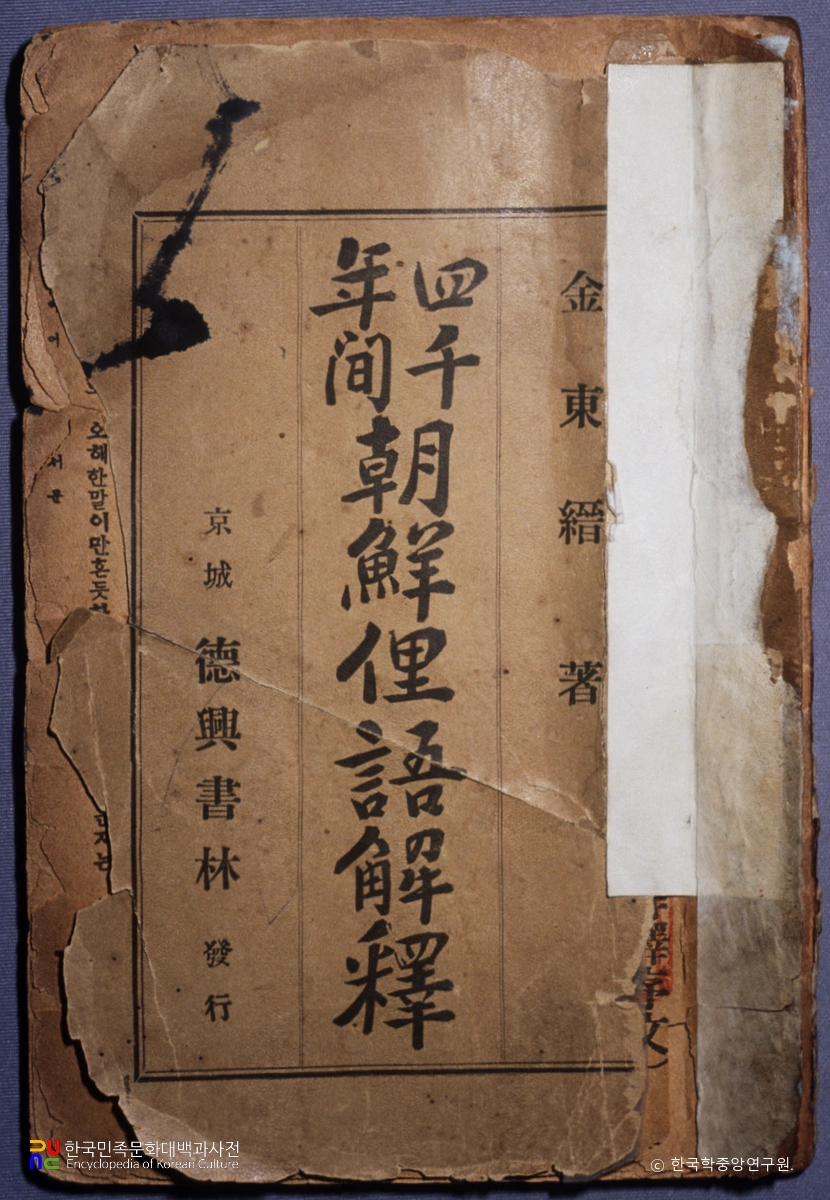 金東縉著
四千年間朝鮮俚語解釋
京城 德興書林 發行
오해한말이만혼듯
한국민족문화대백과사전
Encyclopedia of Korean Culture
© 한국학중앙연구원